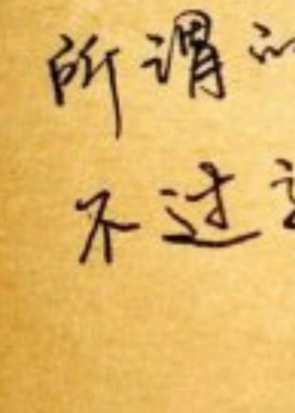 所谓
不过